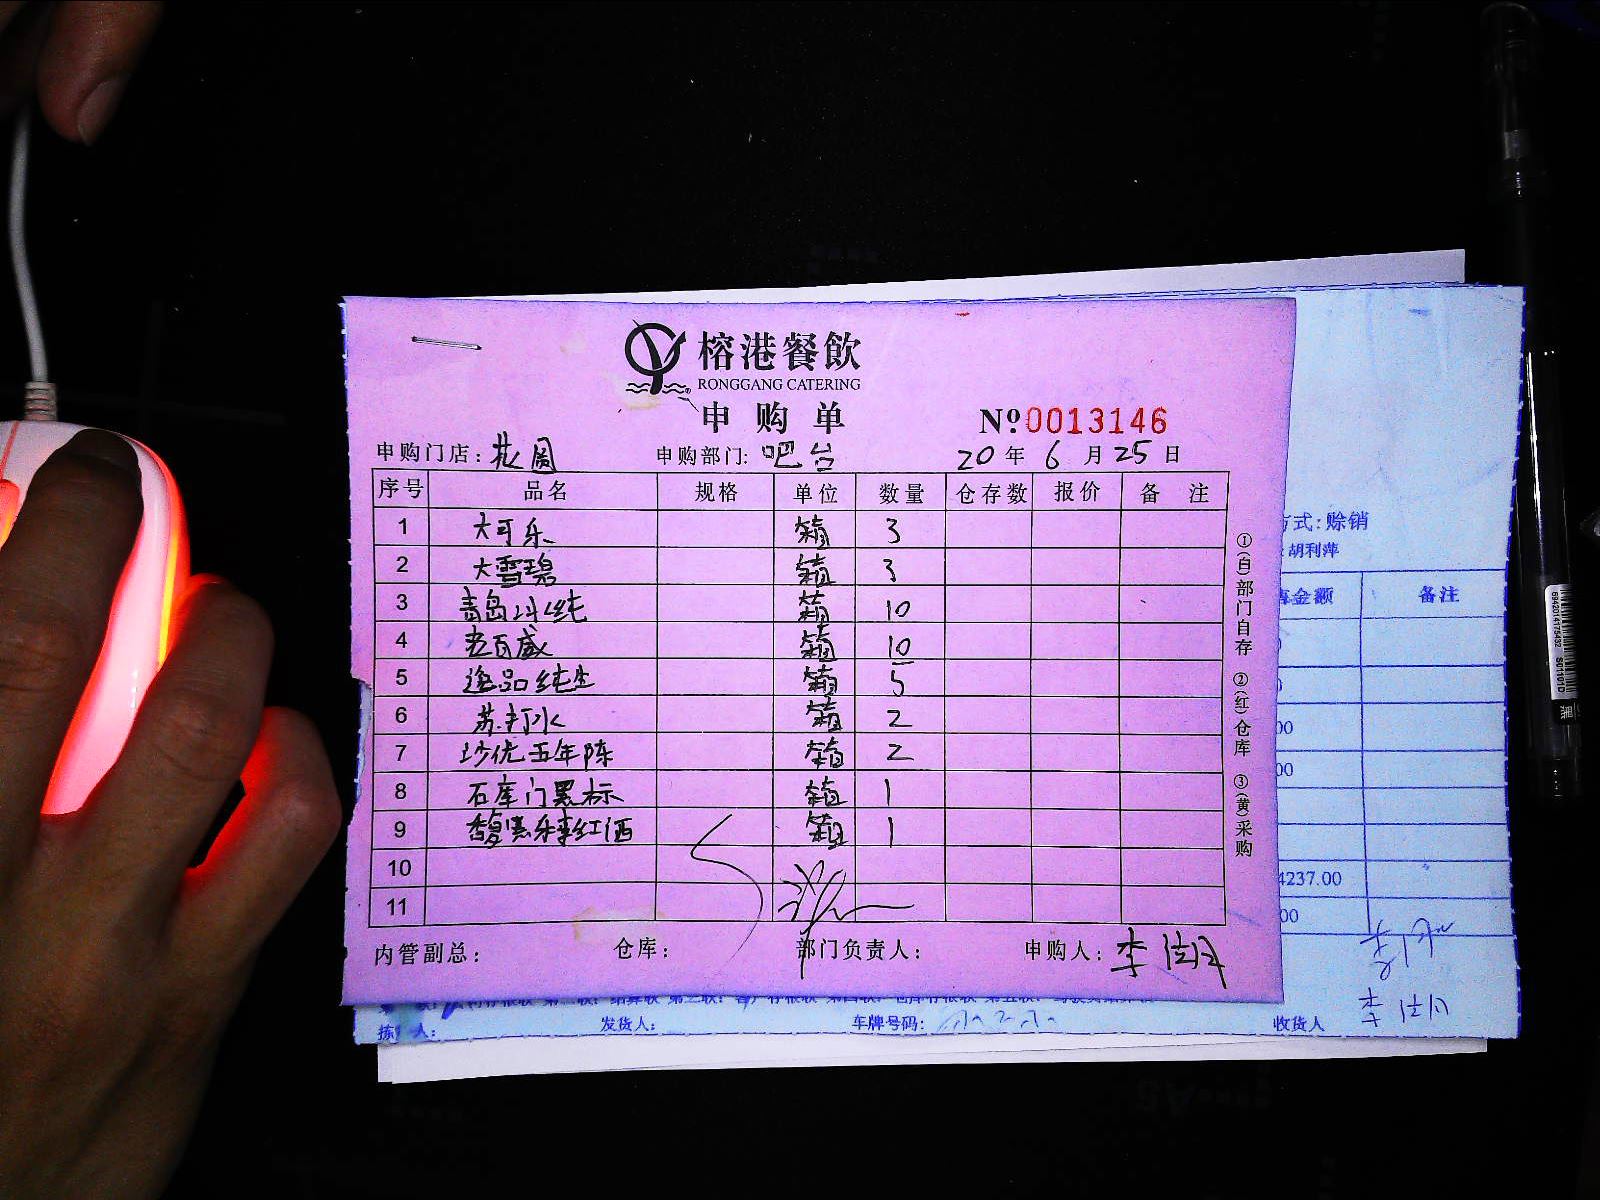 榕港餐飲
RONGGANG CATERING
申购单
№0013146
申购门店: 申购部门: 吧台 20年6月25日
序号 品名 规格 单位 数量 仓存数 报价 备注
1 大可乐 箱 3
2 大雪碧 箱 3
3 青岛冰纯 箱 10
4 老百威 箱 10
5 逸品纯生 箱 5
6 苏打水 箱 2
7 沙优五年陈 箱 2
8 石库门黑标 箱 1
9 红酒 箱 1
10
11
内管副总: 仓库: 部门负责人: 申购人: 李
①(白)部门自存 ②(红)仓库 ③(黄)采购
方式:赊销
胡利萍
金额 备注
00
00
4237.00
00
发货人: 车牌号码: 收货人 李
6942014175432 S01101D